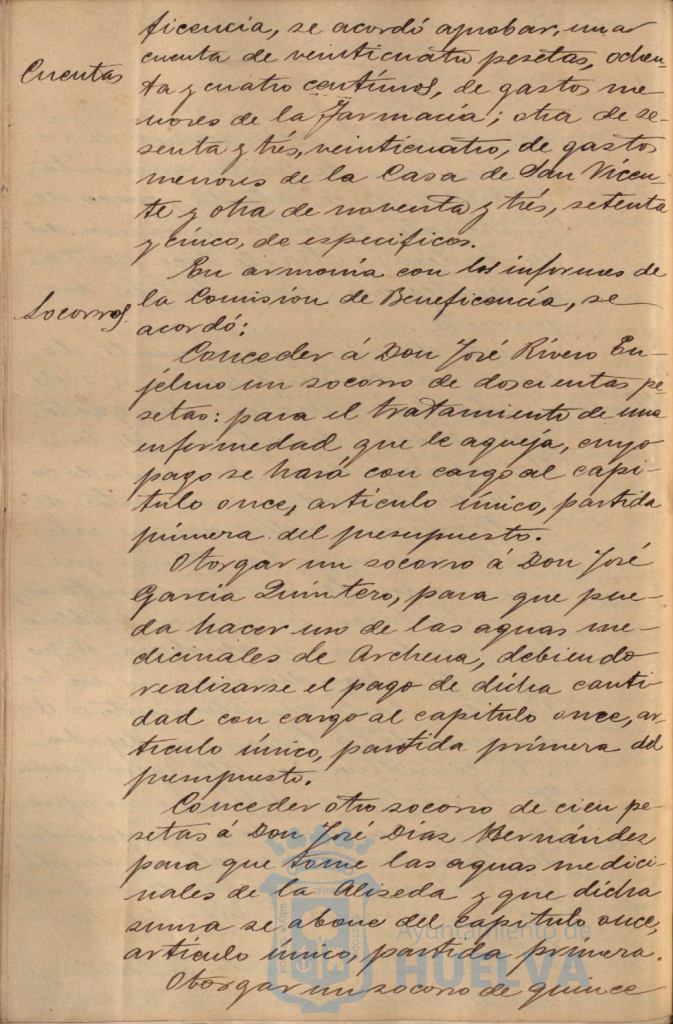 ficencia, se acordó aprobar, una
Cuentas
cuenta de veinticuatro pesetas, ochen-
ta y cuatro centimos, de gastos me
nores de la Farmacia; otra de se-
senta y trés, veinticuatro, de gastos
menores de la Casa de San Vicen-
te y otra de noventa y trés, setenta
y cinco, de especificos.
En armonía con los informes de
Socorros
la Comisión de Beneficencia, se
acordó:
Conceder á Don José Rivero En-
jelmo un socorro de doscientas pe-
setas: para el tratamiento de una
enfermedad que le aqueja, cuyo
pago se hará con cargo al capi-
tulo once, articulo único, partida
primera del presupuesto.
Otorgar un socorro á Don José
García Quintero, para que pue-
da hacer uso de las aguas me-
dicinales de Archena, debiendo
realizarse el pago de dicha canti
dad con cargo al capitulo once, ar-
ticulo único, partida primera del
presupuesto.
Conceder otro socorro de cien pe-
setas á Don José Díaz Bernández
para que tome las aguas medici-
nales de la Aliseda y que dicha
suma se abone del capitulo once,
articulo único, partida primera.
Otorgar un socorro de quince
Ayuntamiento de
HUELVA